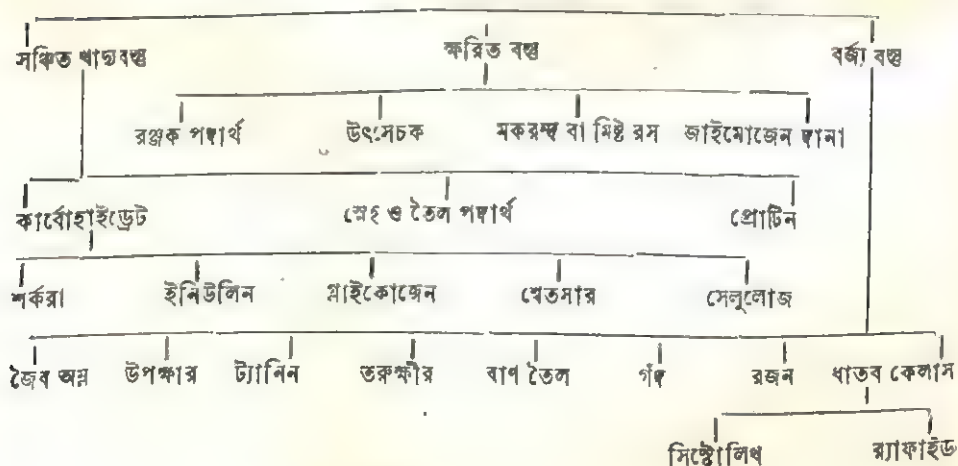 সঞ্চিত খাদ্যবস্তু ক্ষরিত বস্তু বর্জ্য বস্তু
রঞ্জক পদার্থ উৎসেচক মকরন্দ বা মিষ্ট রস জাইমোজেন দানা
কার্বোহাইড্রেট স্নেহ ও তৈল পদার্থ প্রোটিন
শর্করা ইনিউলিন গ্লাইকোজেন শ্বেতসার সেলুলোজ
জৈব অম্ল উপক্ষার ট্যানিন তরুক্ষীর বাণ তৈল গঁদ রজন ধাতব কেলাস
সিস্টোলিথ র‍্যাফাইড